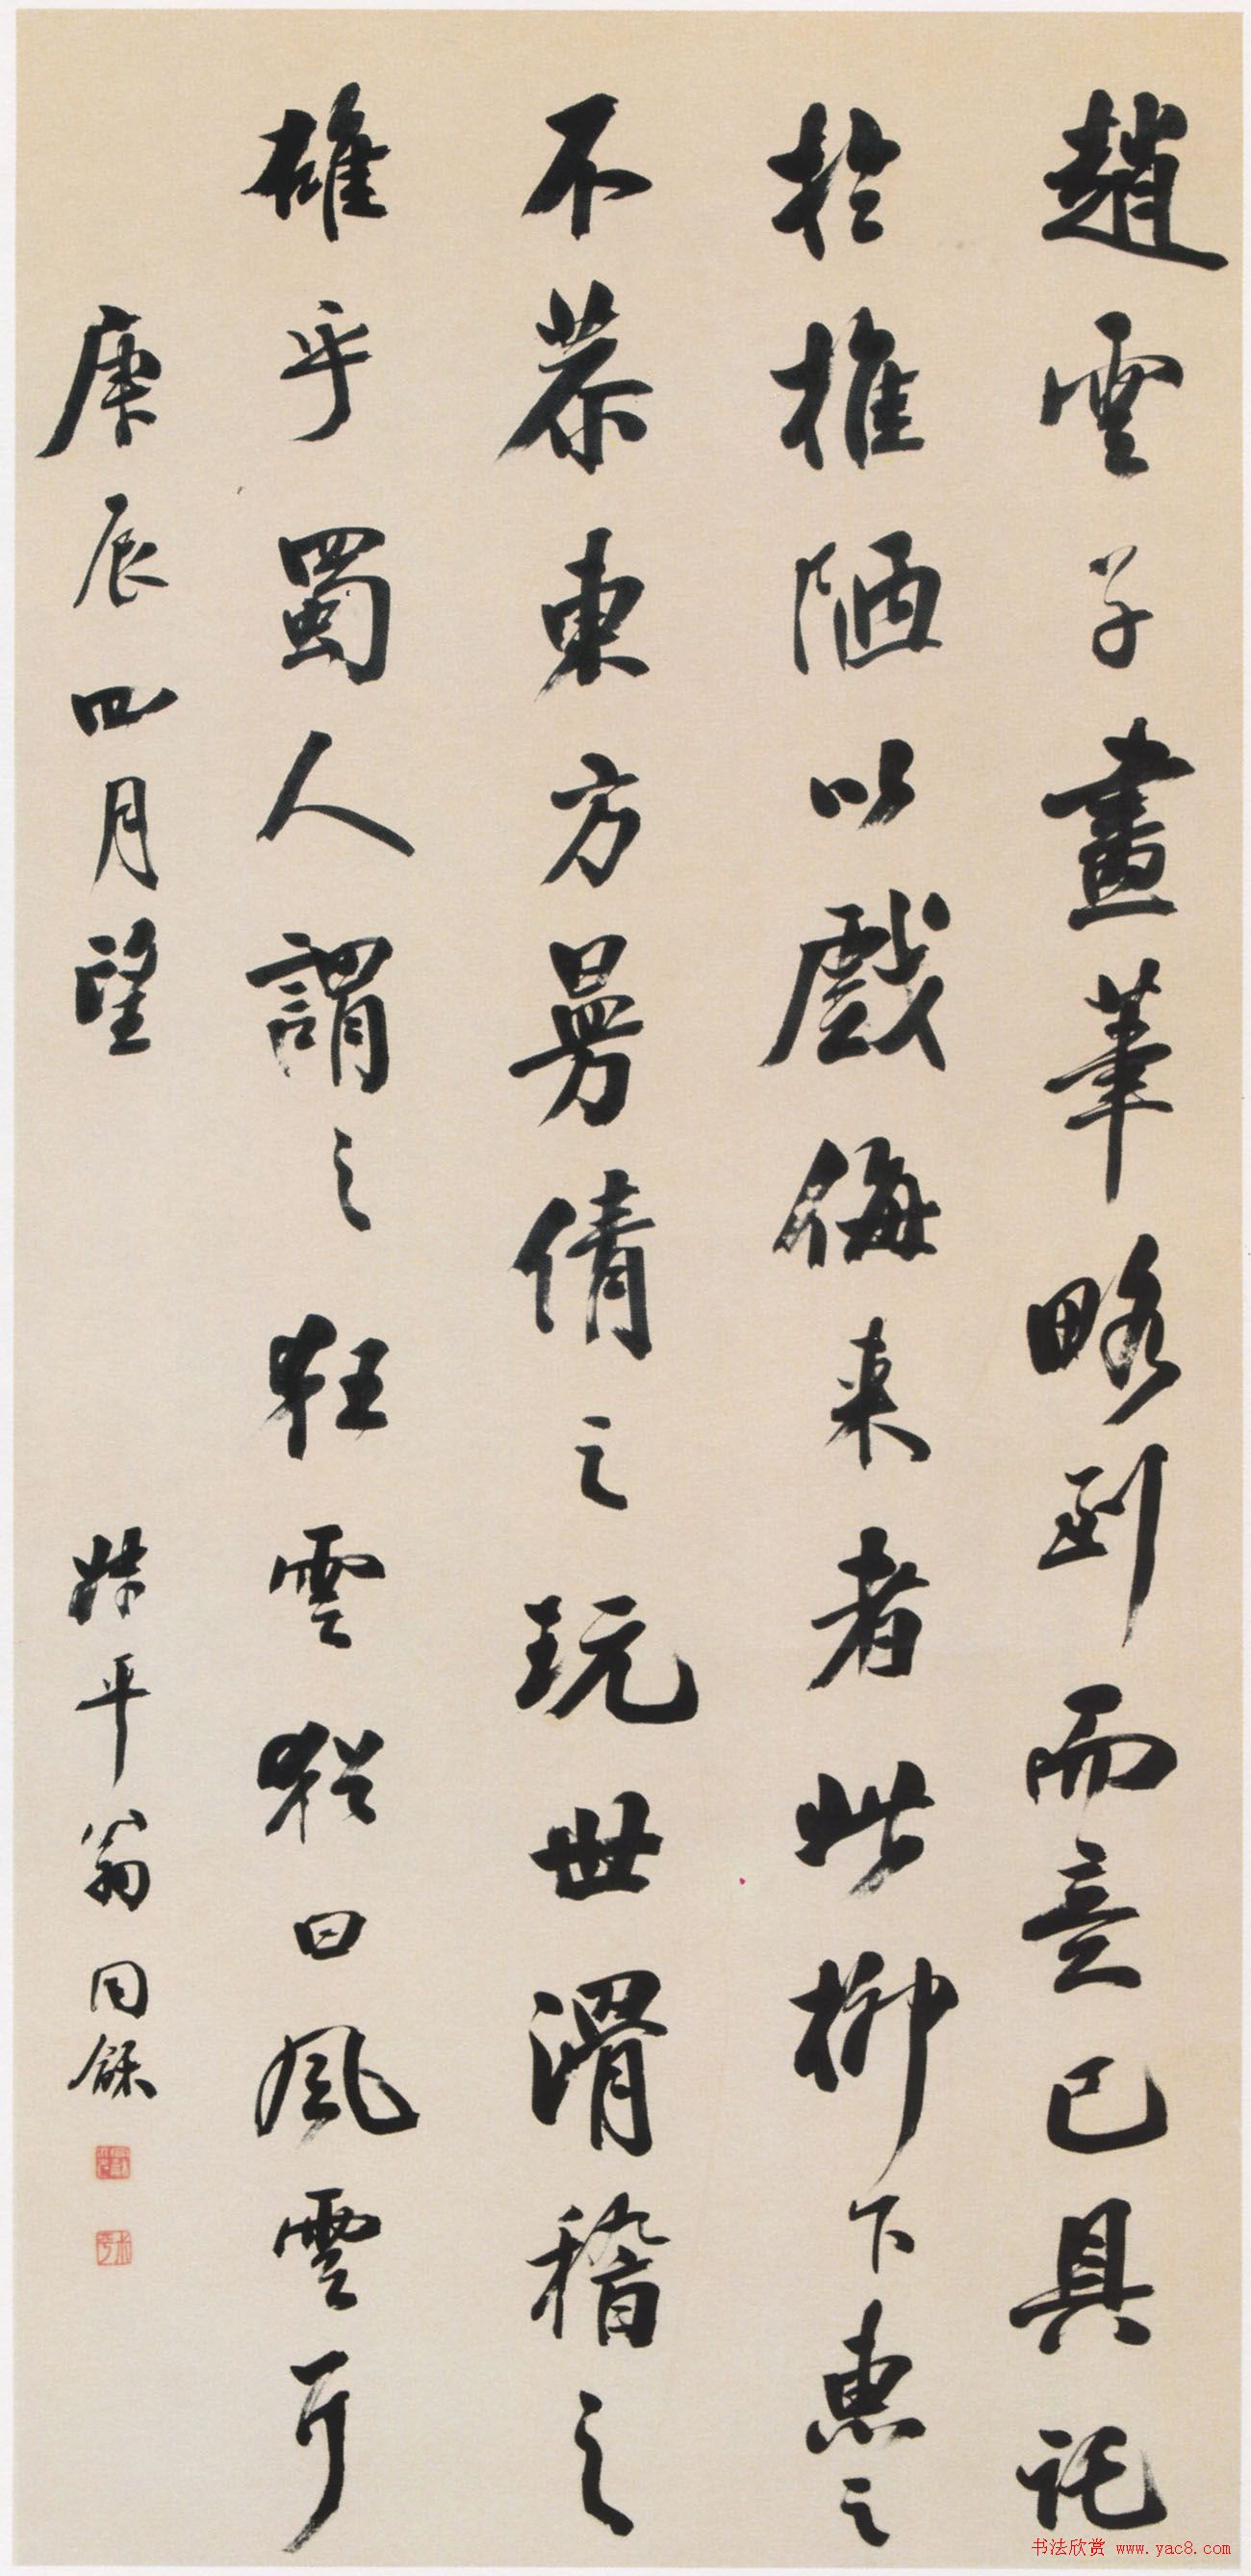 趙雲子畫筆略到而意已具託
於椎陋以戲侮来者此柳下惠之
不恭東方曼倩之玩世滑稽之
雄乎蜀人謂之狂雲猶曰風雲耳
庚辰四月望
姝平翁同龢
书法欣赏 www.yac8.com